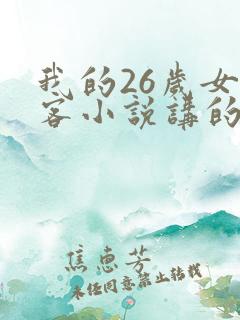 我的26歲女
客小説講的
焦恵芳
未经同意禁止转载